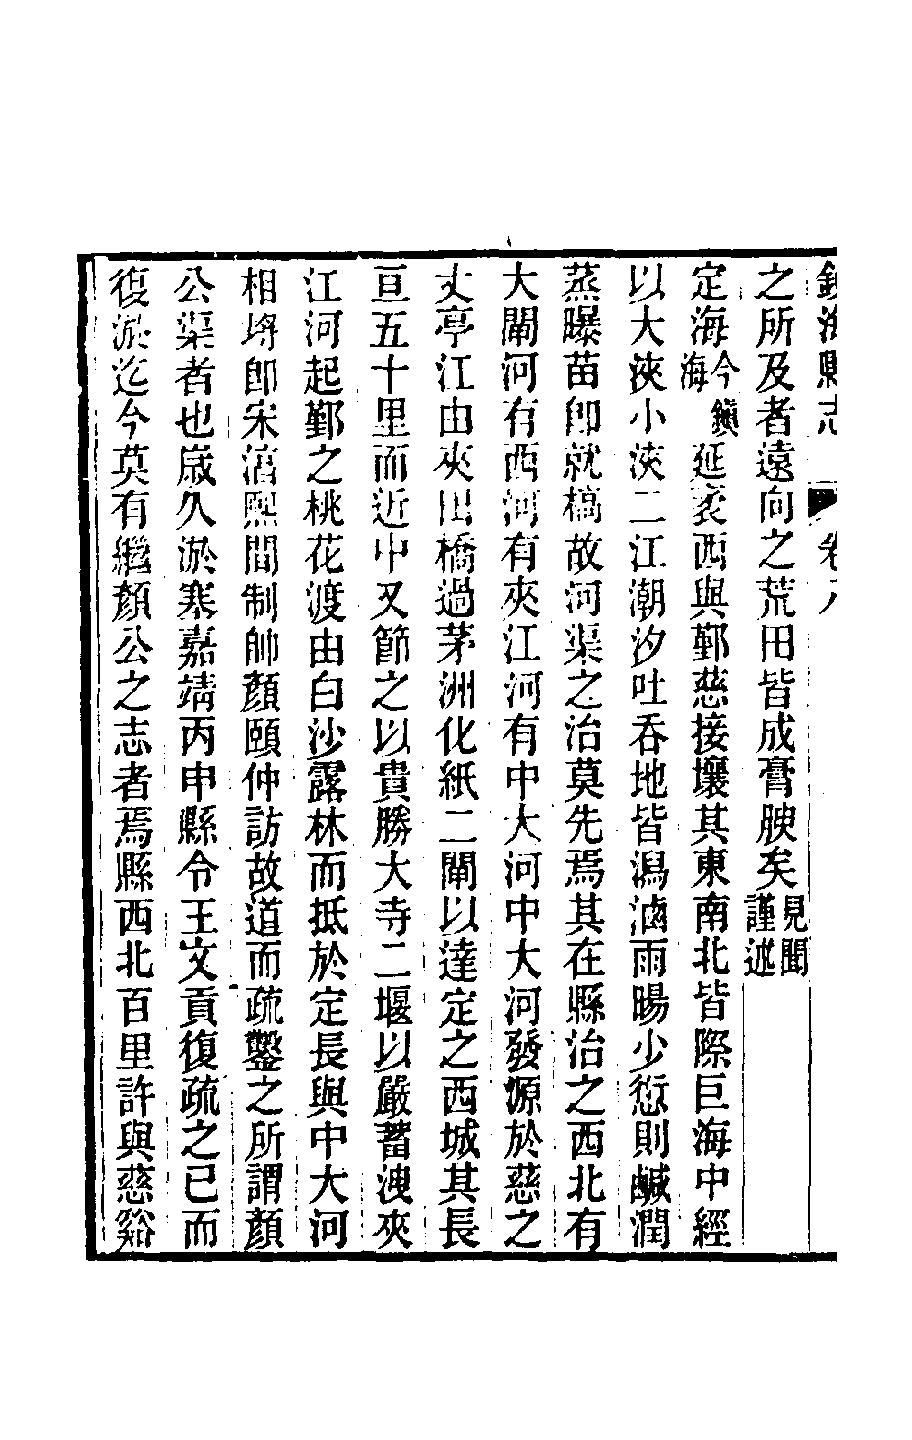 鎮海縣志　卷八
之所及者遠向之荒田皆成膏腴矣見聞謹述
定海今鎮海延袤西與鄞慈接壤其東南北皆際巨海中經
以大浹小浹二江潮汐吐吞地皆潟滷雨暘少愆則鹹潤
蒸曝苗卽就槁故河渠之治莫先焉其在縣治之西北有
大閘河有西河有夾江河有中大河中大河發源於慈之
丈亭江由夾田橋過茅洲化紙二閘以達定之西城其長
亘五十里而近中又節之以貴勝大寺二堰以嚴蓄洩夾
江河起鄞之桃花渡由白沙露林而抵於定長與中大河
相埒卽宋淳熙間制帥顏頤仲訪故道而疏鑿之所謂顏
公渠者也歲久淤塞嘉靖丙申縣令王文貢復疏之已而
復淤迄今莫有繼顏公之志者焉縣西北百里許與慈谿